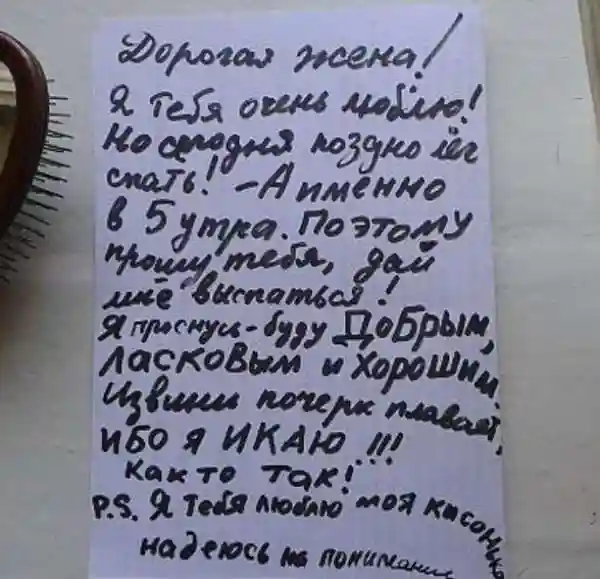 Дорогая жена!
Я тебя очень люблю!
Но сегодня поздно лёг
спать! - А именно
в 5 утра. Поэтому
прошу тебя, дай
мне выспаться!
Я проснусь - буду Добрым,
ласковым и хорошим.
Извини почерк плавает,
ибо я ИКАЮ!!!
как то так!
P.S. Я тебя люблю моя кисонька
надеюсь на понимание